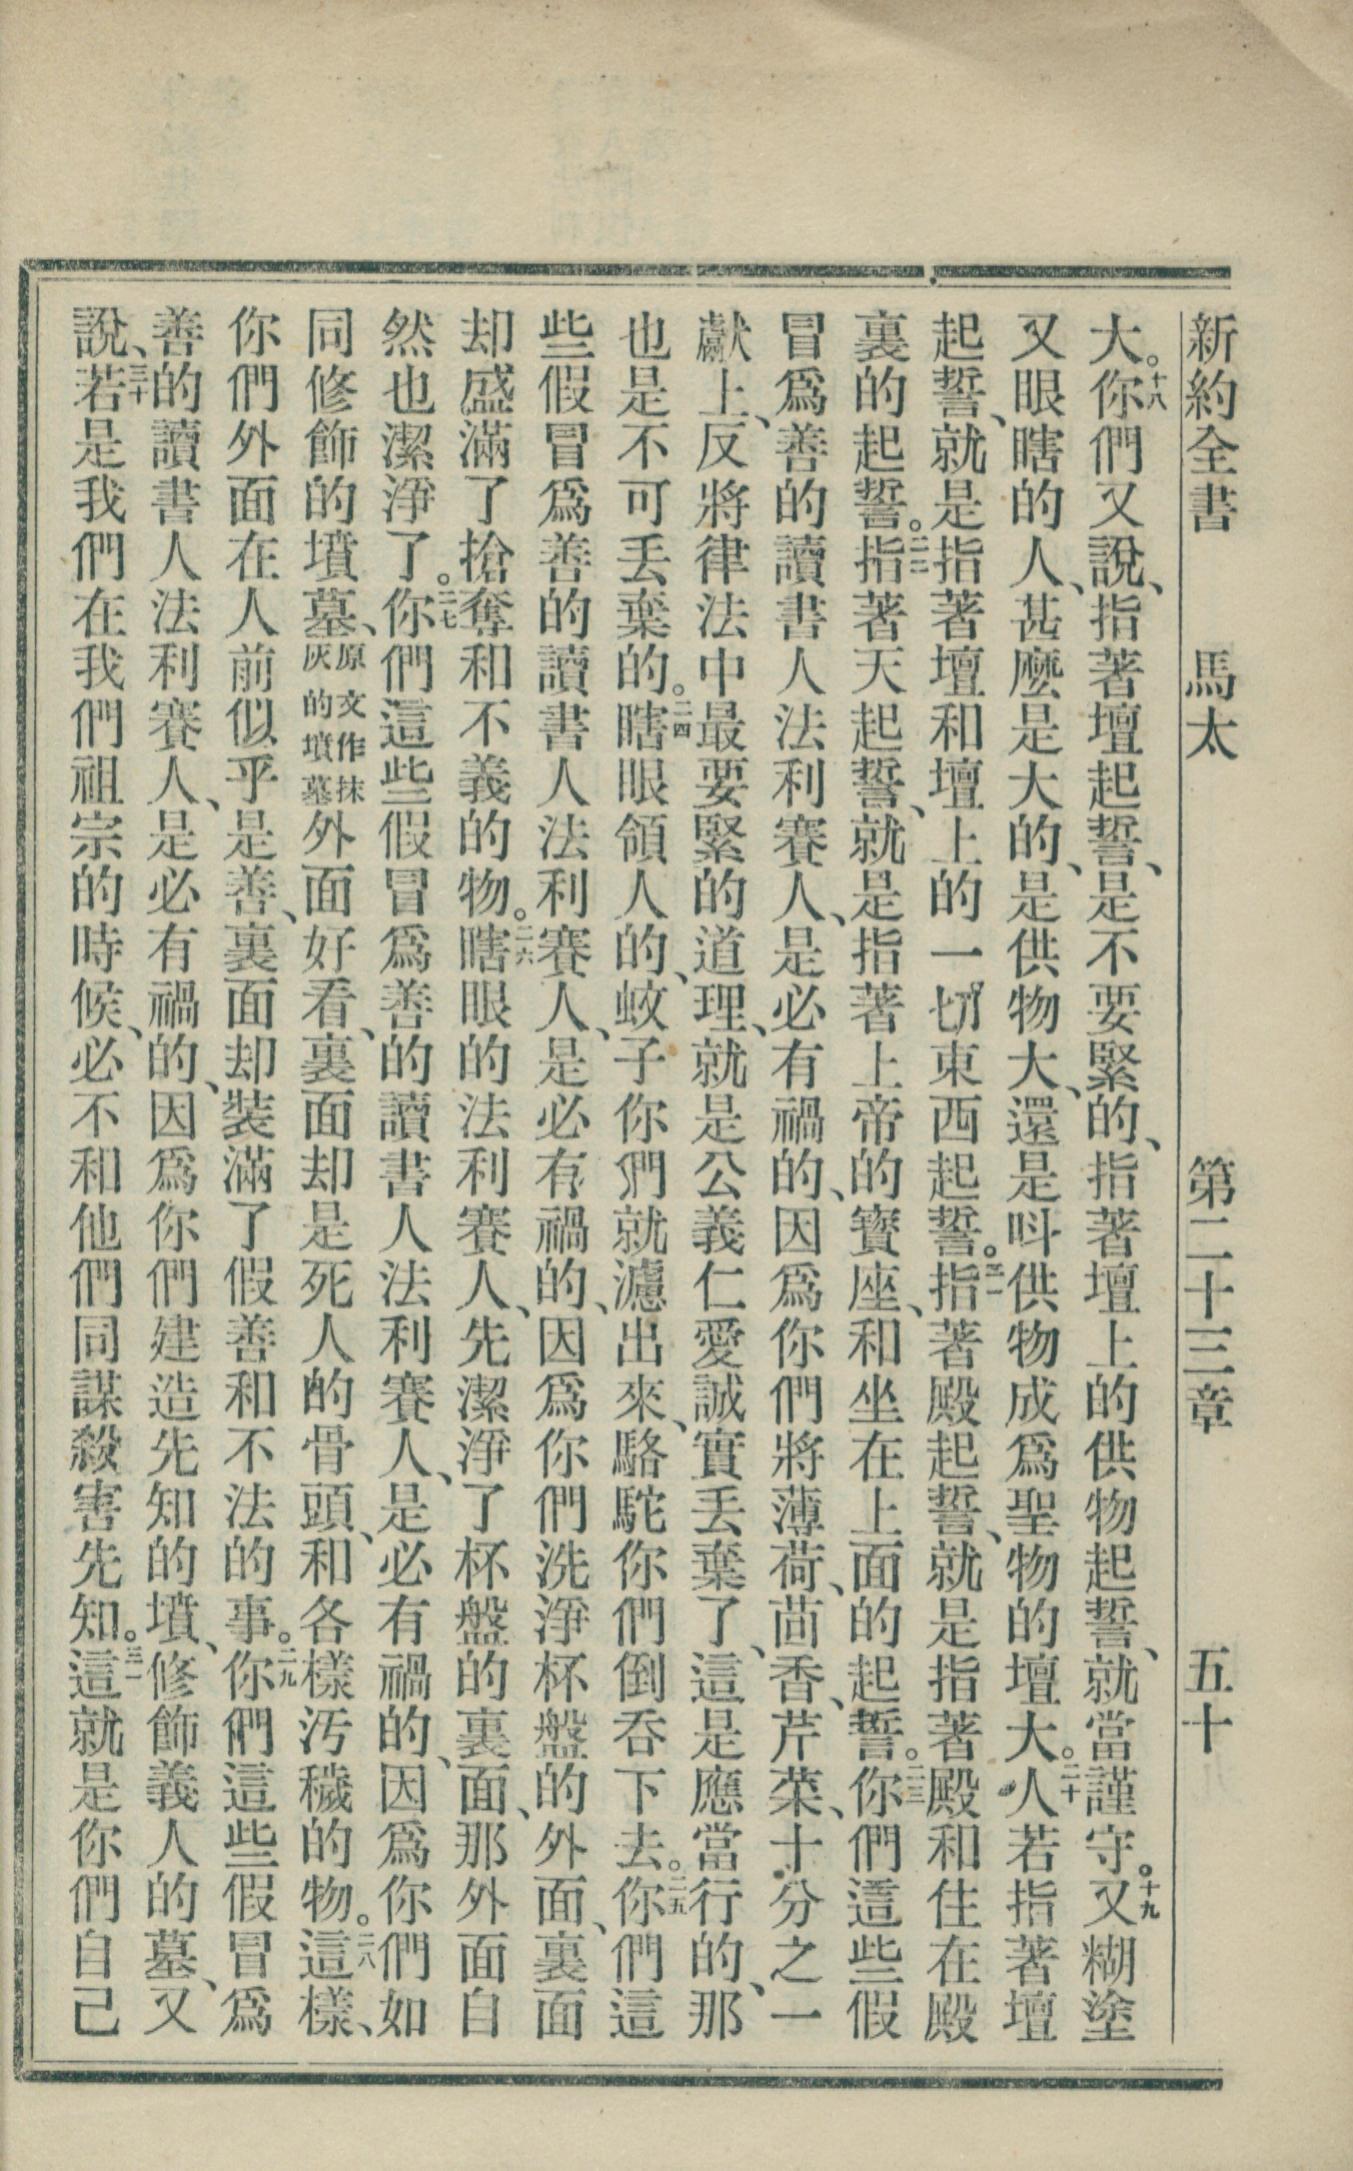 新約全書 馬太 第二十三章 五十
大。十八你們又說、指著壇起誓、是不要緊的、指著壇上的供物起誓、就當謹守。十九又糊塗
又眼瞎的人、甚麼是大的、是供物大、還是呌供物成爲聖物的壇大。二十人若指著壇
起誓、就是指著壇和壇上的一切東西起誓。二一指著殿起誓、就是指著殿和住在殿
裏的起誓。二二指著天起誓、就是指著上帝的寶座、和坐在上面的起誓。二三你們這些假
冒爲善的讀書人法利賽人、是必有禍的、因爲你們將薄荷、茴香、芹菜、十分之一
獻上、反將律法中最要緊的道理、就是公義仁愛誠實丟棄了、這是應當行的、那
也是不可丟棄的。二四瞎眼領人的、蚊子你們就濾出來、駱駝你們倒吞下去。二五你們這
些假冒爲善的讀書人法利賽人、是必有禍的、因爲你們洗淨杯盤的外面、裏面
却盛滿了搶奪和不義的物。二六瞎眼的法利賽人、先潔淨了杯盤的裏面、那外面自
然也潔淨了。二七你們這些假冒爲善的讀書人法利賽人、是必有禍的、因爲你們如
同修飾的墳墓、原文作抹灰的墳墓外面好看、裏面却是死人的骨頭、和各樣汚穢的物。二八這樣、
你們外面在人前似乎是善、裏面却裝滿了假善和不法的事。二九你們這些假冒爲
善的讀書人法利賽人、是必有禍的、因爲你們建造先知的墳、修飾義人的墓、又
說、三十若是我們在我們祖宗的時候、必不和他們同謀殺害先知。三一這就是你們自己